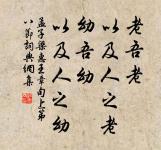 老吾老
以及人之老
幼吾幼
以及人之幼
孟子梁惠王章句上第
八節詞典網集